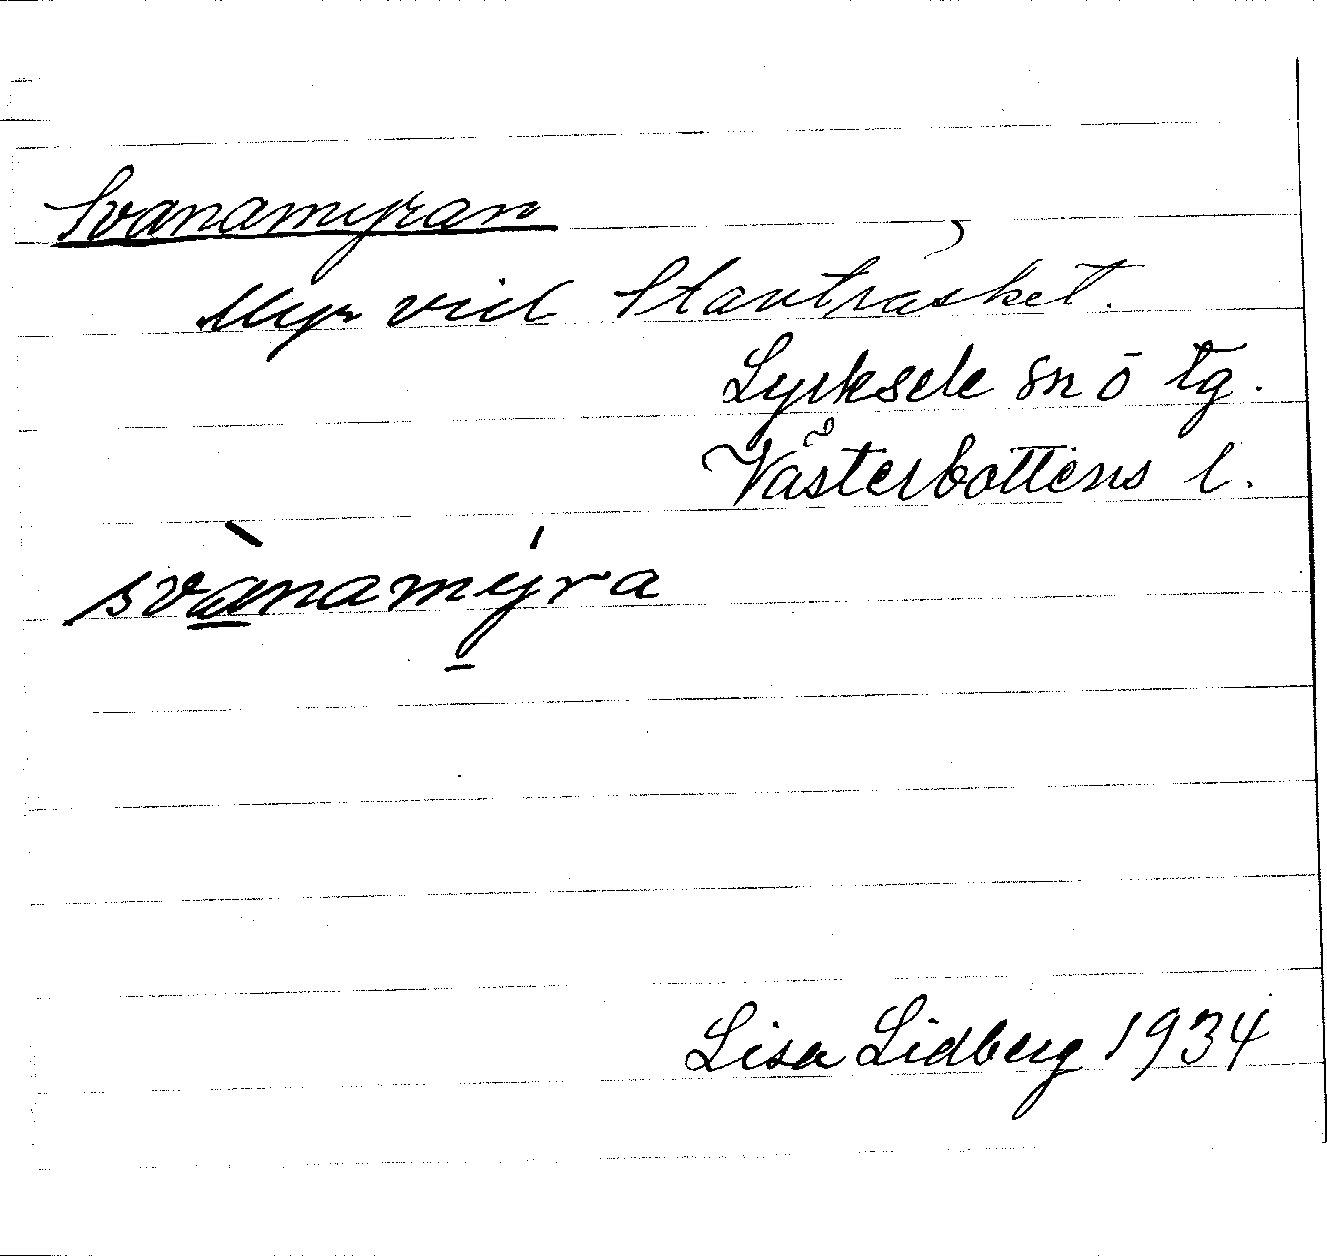 Svanamyran
Myr vid Stavträsket.
Lycksele sn o tg.
Västerbottens l.
svànamýra
Lisa Lidberg 1934